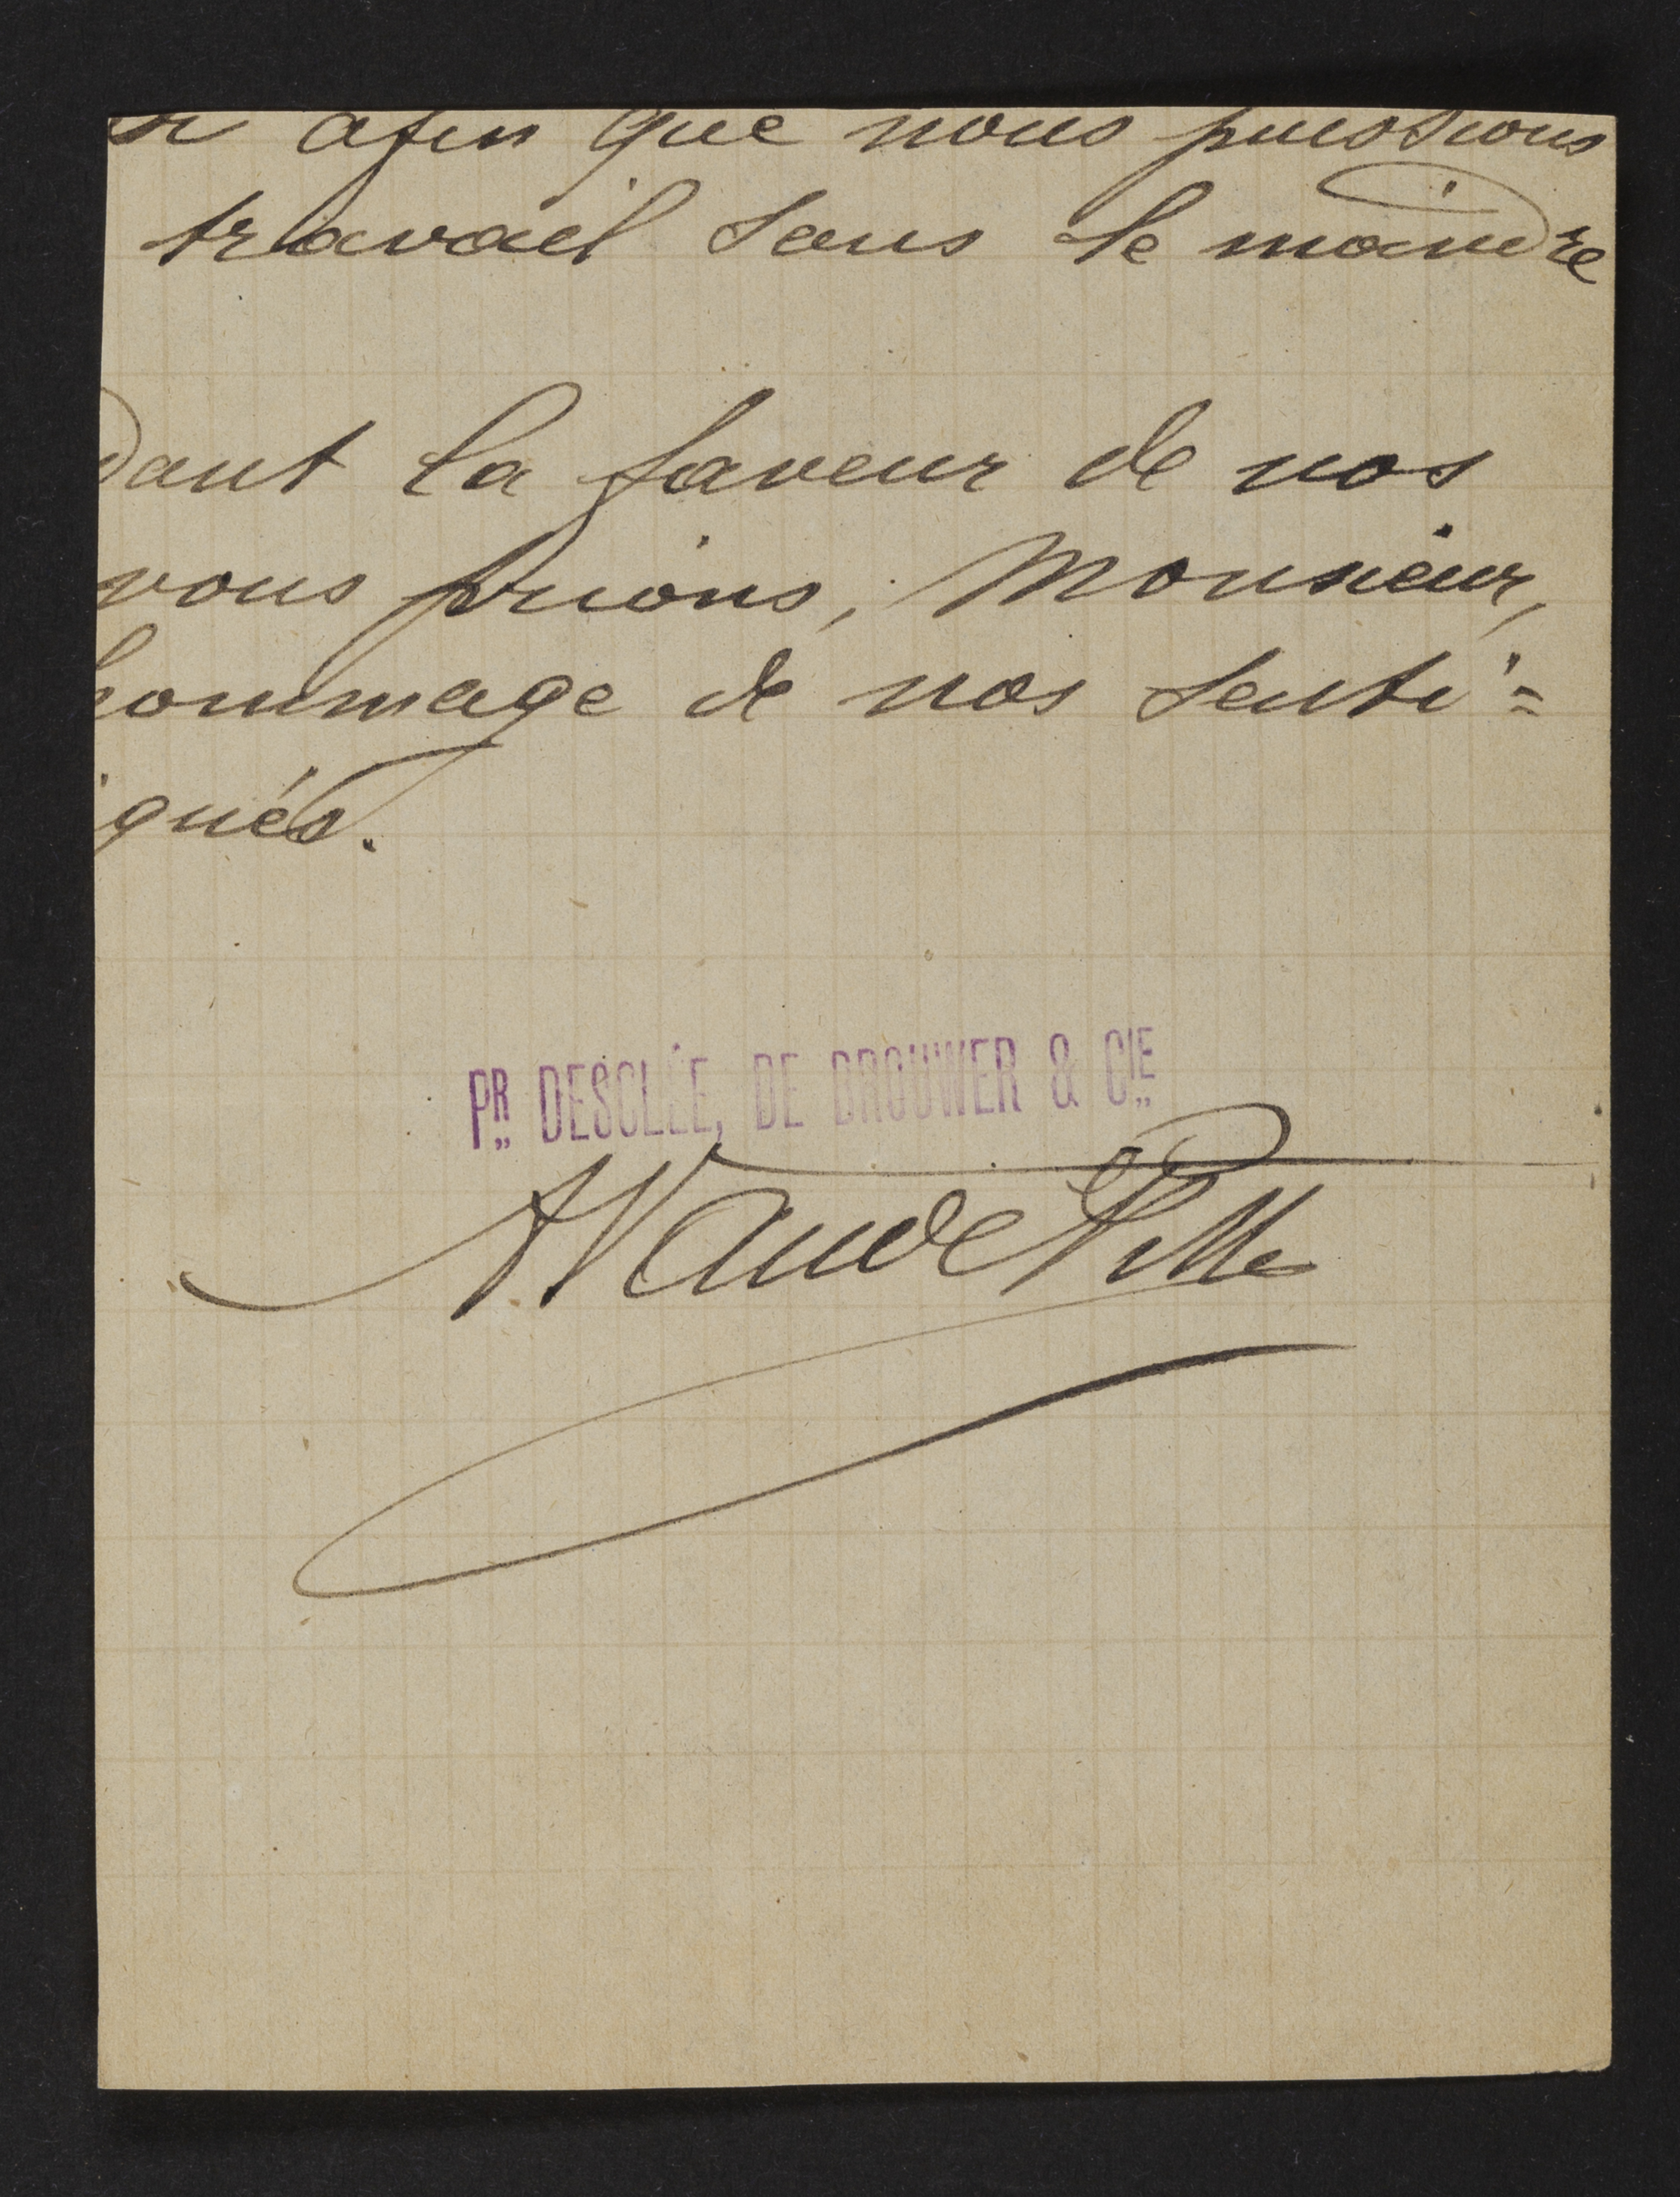 afin que nous puissions
travail sans le moindre
dant la faveur de nos
vous prions, Monsieur,
hommage de nos senti=
gués.
PR DESCLÉE, DE BROUWER & CIE
A Van de Ville